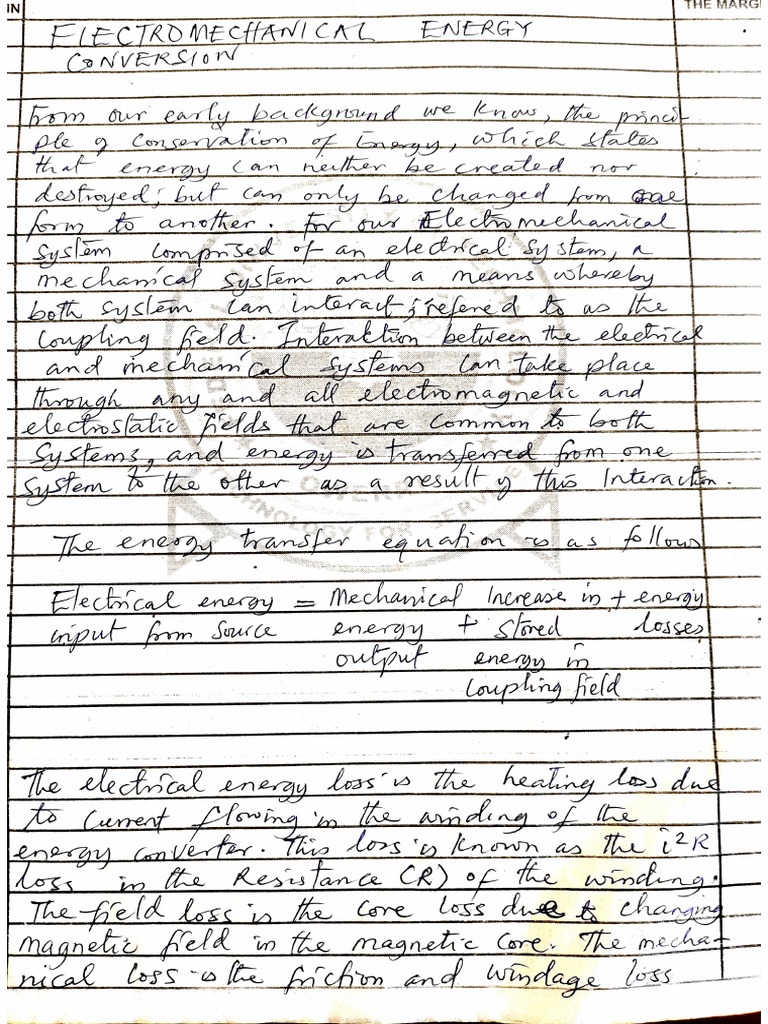 IN
THE MARG
ELECTROMECHANICAL ENERGY
CONVERSION
From our early background we know, the princi-
ple of Conservation of Energy, which states
that energy can neither be created nor
destroyed; but can only be changed from one
form to another. For our Electromechanical
system comprised of an electrical system, a
mechanical system and a means whereby
both system can interact; refered to as the
Coupling field. Interaktion between the electrical
and mechanical systems can take place
through any and all electromagnetic and
electrostatic fields that are common to both
systems, and energy is transferred from one
system to the other as a result of this Interaction.
TECHNOLOGY FOR SERVICE
The energy transfer equation is as follows
Electrical energy = Mechanical Increase in + energy
input from source energy + stored losses
output energy in
Coupling field
The electrical energy loss is the heating loss due
to current flowing in the winding of the
energy converter. This loss is known as the i²R
loss in the Resistance (R) of the winding.
The field loss is the core loss due to changing
magnetic field in the magnetic core. The mecha-
nical loss is the friction and windage loss